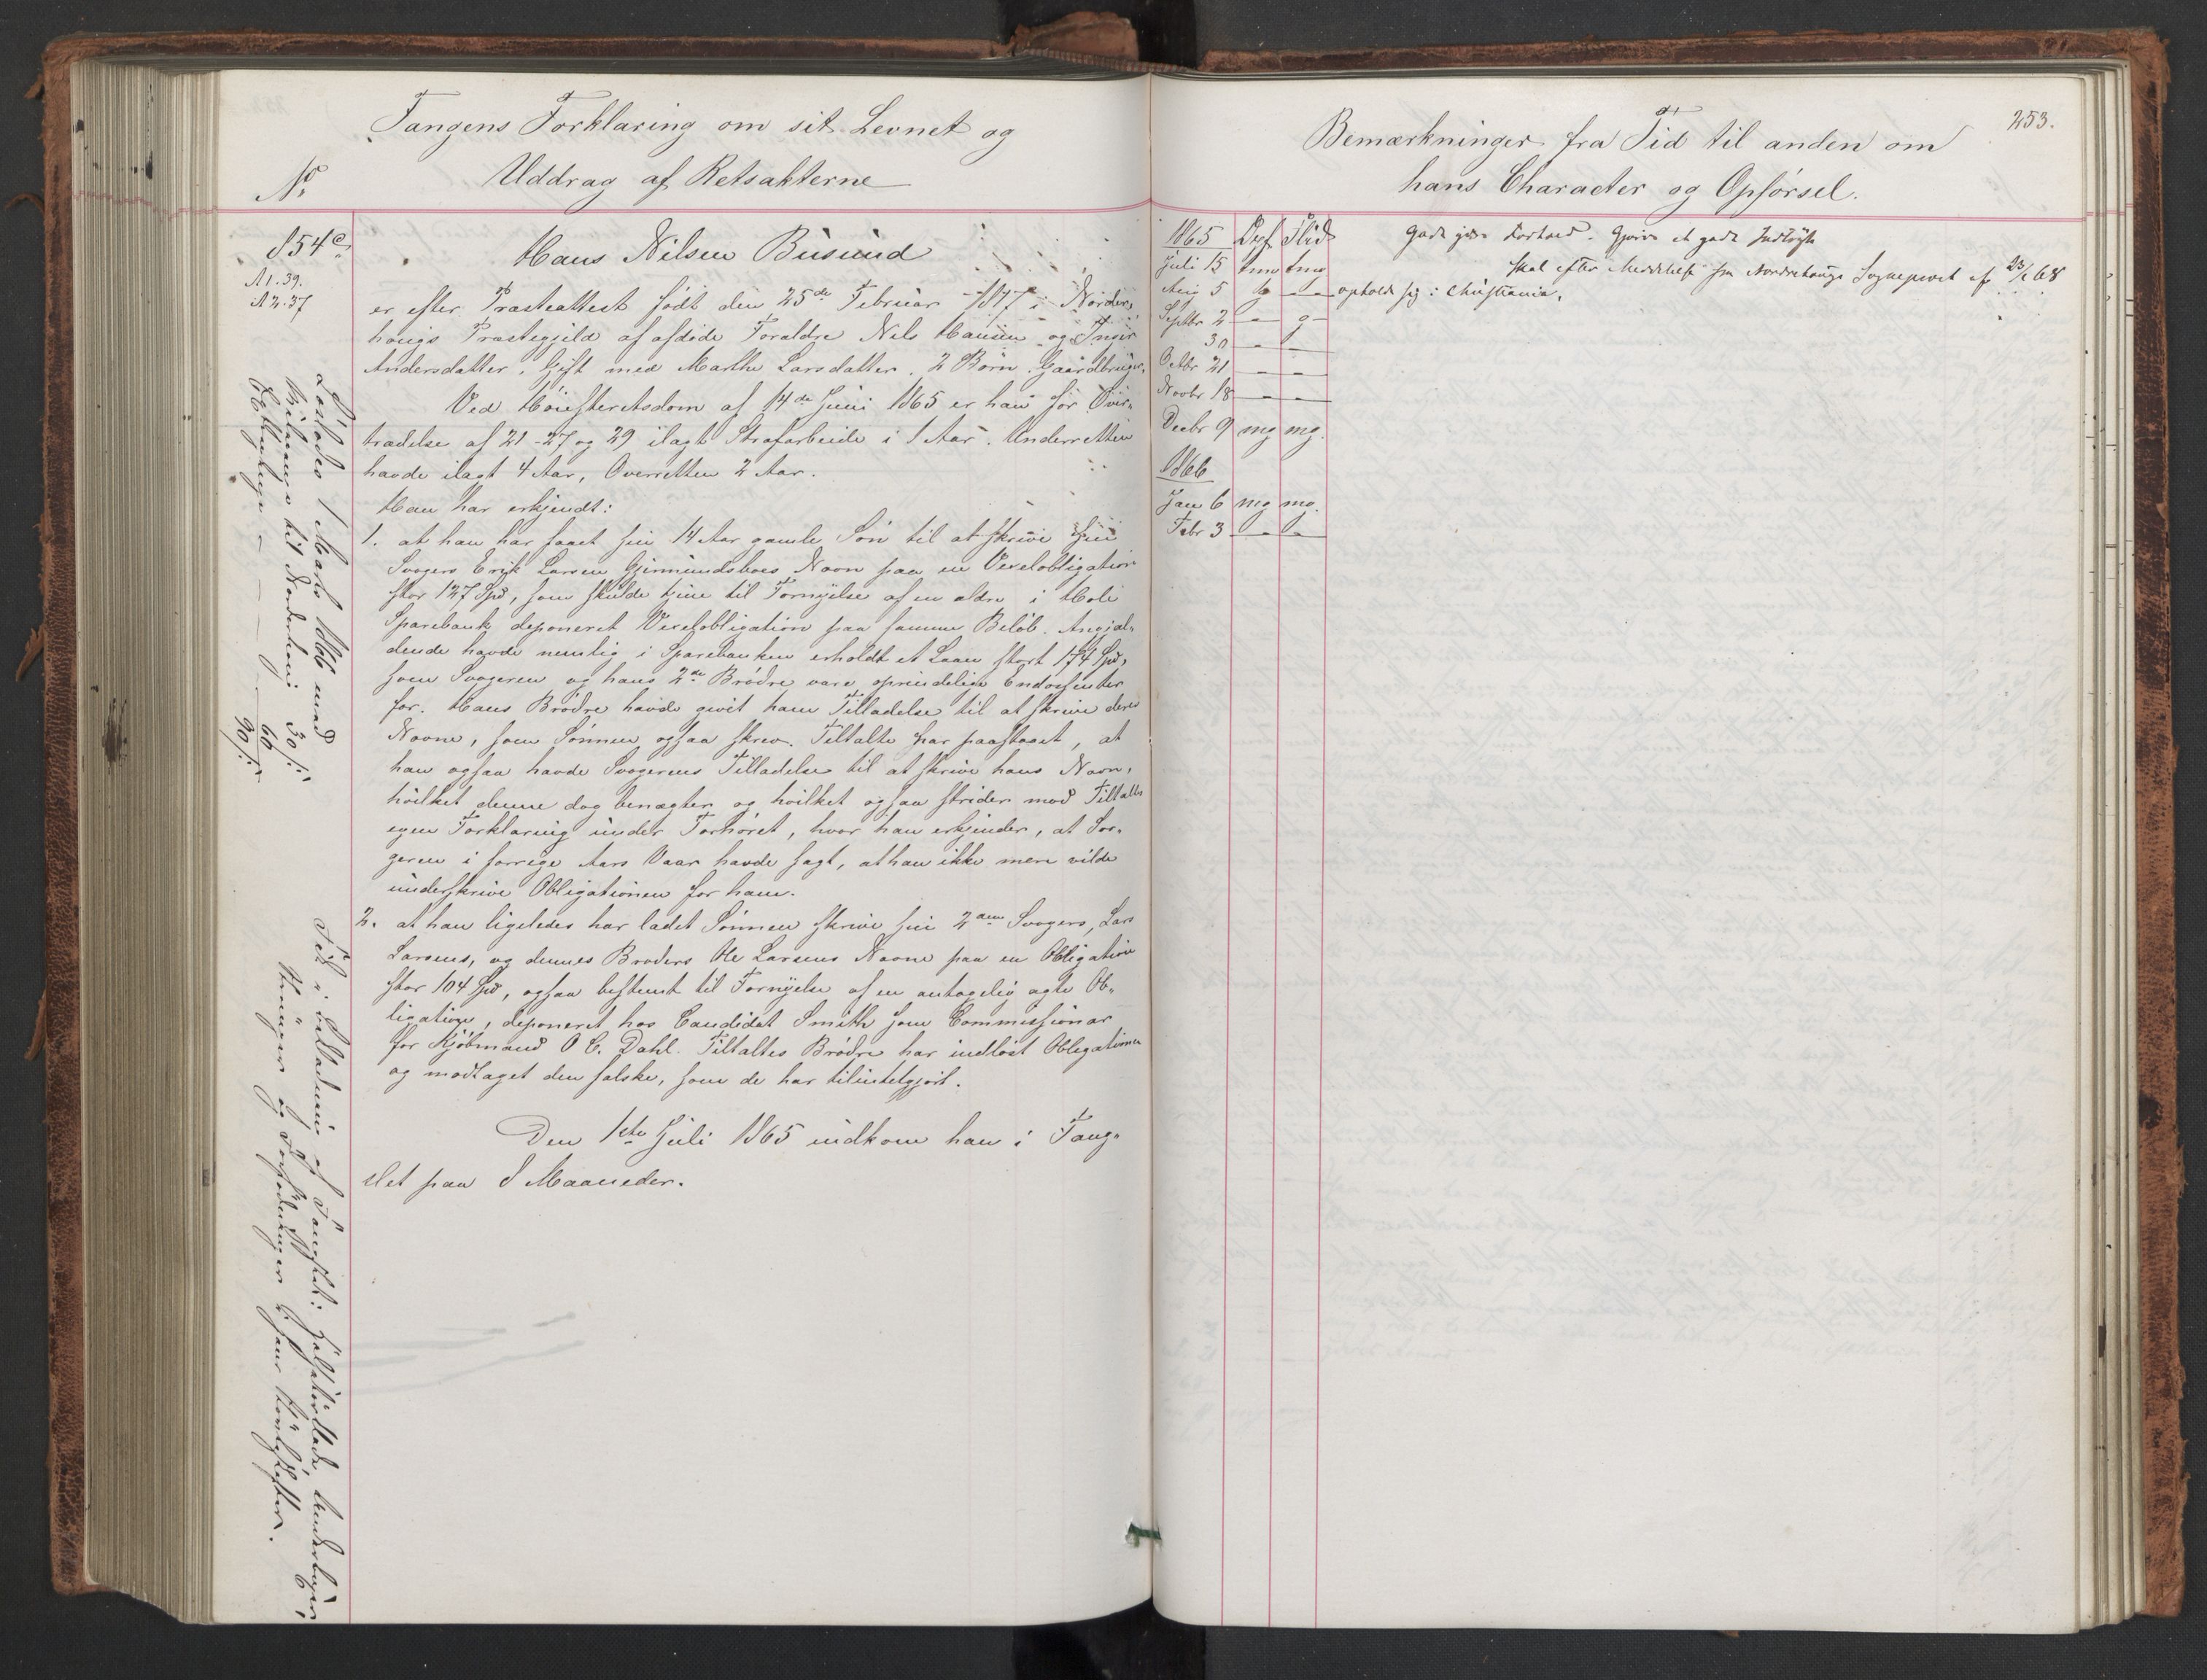 Fangens Forklaring om sit Levnet og
Uddrag af Retsakterne
No
854c
A 1. 39.
A 2. 37
Hans Nilsen Busund
er efter Præsteattest født den 25de Februar i Norder-
hougs Præstegjeld af afdøde Forældre Nils Hansen og
Andersdatter. Gift med Marthe Larsdatter. 2 Børn. Gaardbruger.
Ved Høiesteretsdom af 14de Juni 1865 er han for Over-
trædelse af 21-27 og 29 ilagt Strafarbeide i 1 Aar. Underretten
havde ilagt 4 Aar, Overretten 2 Aar.
Han har erkjendt:
1. at han har faaet sin 14 Aar gamle Søn til at skrive sin
Svogers Erik Larsen Gjermundsboes Navn paa en Vexelobligation
stor 127 Spd, som skulde tjene til Fornyelse af en ældre i Hole
Sparebank deponeret Vexelobligation paa samme Beløb. Angjæl-
dende havde nemlig i Sparebanken erholdt et Laan stort 174 Spd,
som Svogeren og hans 2de Brødre vare oprindelige Endossenter
for. Hans Brødre havde givet ham Tilladelse til at skrive deres
Navne, som Sønnen ogsaa skrev. Tiltalte har paastaaet, at
han ogsaa havde Svogerens Tilladelse til at skrive hans Navn,
hvilket denne dog benægter og hvilket ogsaa strider mod Tiltaltes
egen Forklaring under Forhøret, hvor han erkjender, at Svo-
geren i forrige Aars Vaar havde sagt, at han ikke mere vilde
underskrive Obligationen for ham.
2. at han ligeledes har ladet Sønnen skrive sin 2den Svogers, Lars
Larsens, og dennes Broders Ole Larsens Navne paa en Obligation
stor 104 Spd, ogsaa bestemt til Fornyelse af en antagelig ægte Ob-
ligation, deponeret hos Candidat Smith som Commissionær
for Kjøbmand O C. Dahl. Tiltaltes Brødre har indløst Obligationen
og modtaget den falske, som de har tilintetgjort.
Den 1ste Juli 1865 indkom han i Fæng-
slet paa 8 Maaneder.
Løslodes 1 Marts 1866 med
til Norderhoug 30 s
60
90 s
Fik i af Fængslet:
og
253.
Bemærkninger fra Tid til anden om
hans Character og Opførsel.
1865 Opf. Flid
Juli 15 tmm tmm
Aug 5 g —
Septbr 2 — g
30 — —
Octbr 21 — —
Novbr 18 — —
Decbr 9 mg mg.
1866
Jan 6 mg mg.
Febr 3 — —
godt Forhold. Gjøre et godt Indtryk
skal efter Meddelelse fra Nordrehougs Sognepræst af 23/ 68
opholde sig i Christiania.